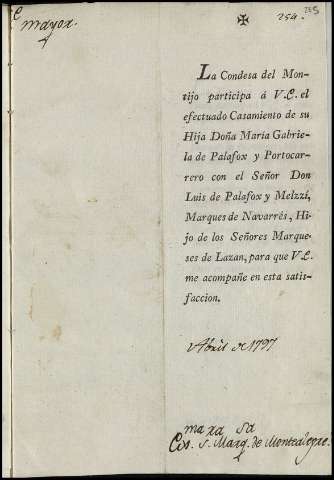 mayor.
254.
La Condesa del Mon-
tijo participa á V.E. el
efectuado Casamiento de su
Hija Doña María Gabrie-
la de Palafox y Portocar-
rero con el Señor Don
Luis de Palafox y Melzzí,
Marques de Navarrés, Hi-
jo de los Señores Marque-
ses de Lazan, para que V.E.
me acompañe en esta satis-
faccion.
Abril de 1797
S. Marq. de Montealegre.